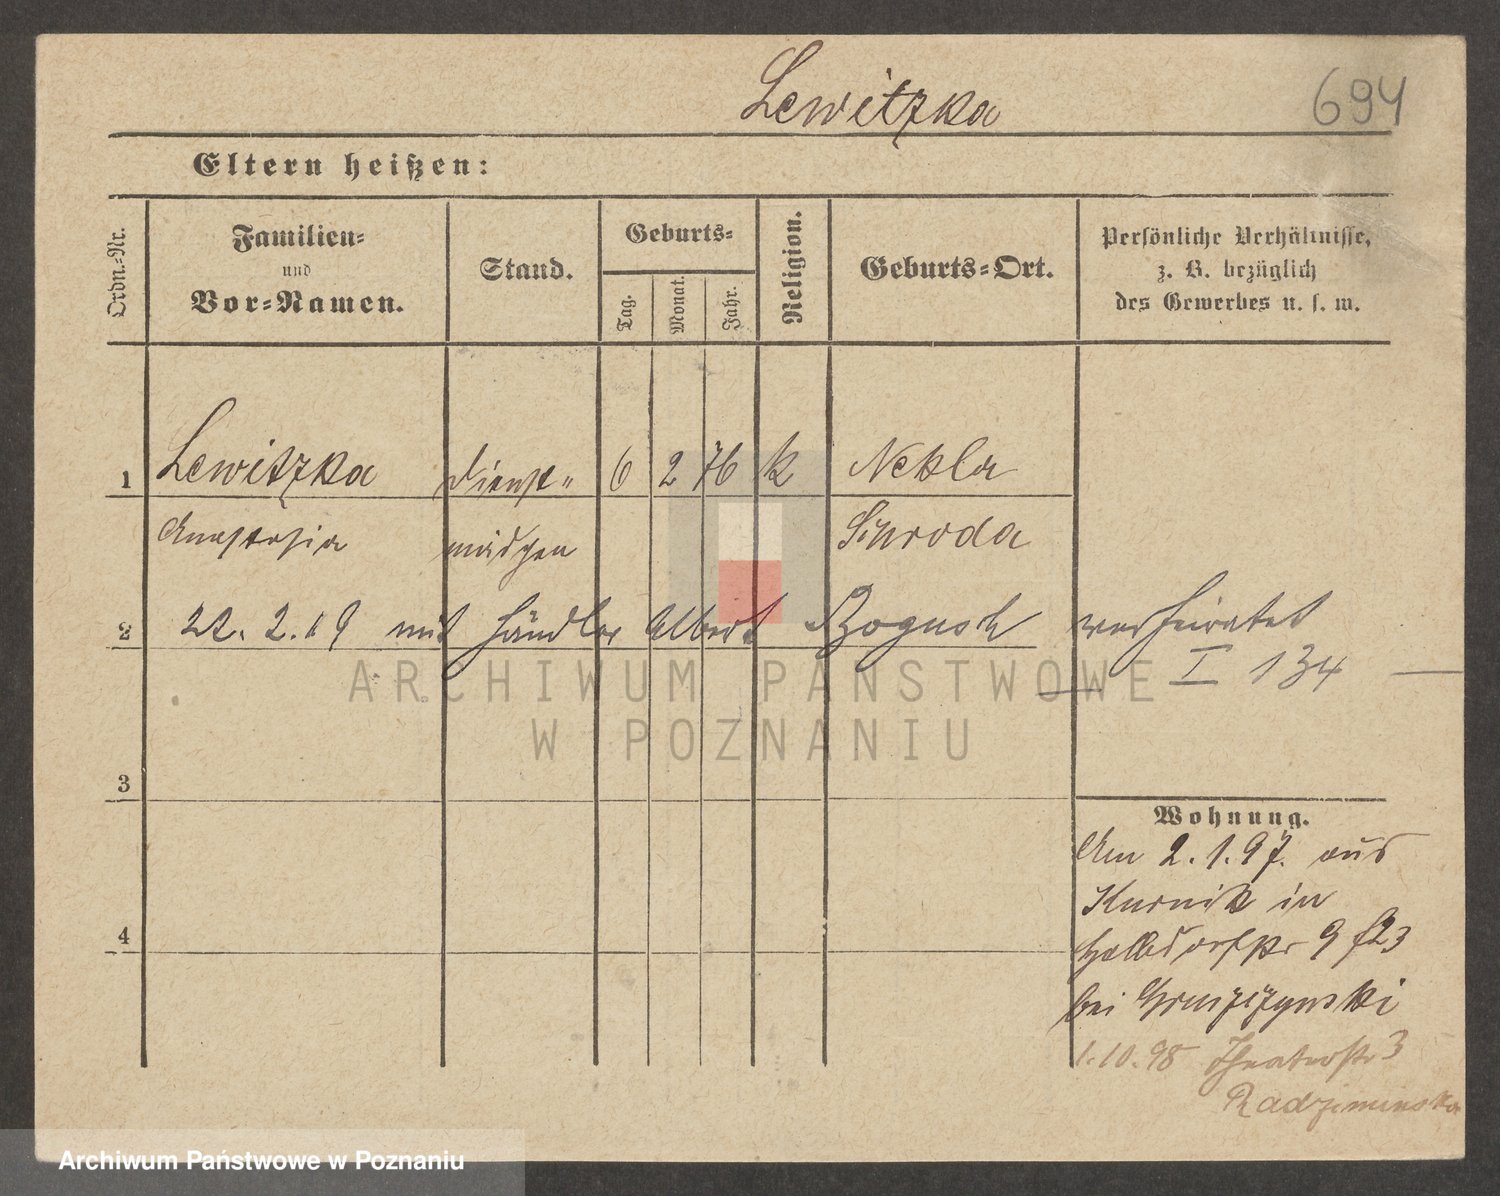 Lewitzka
694
Eltern heißen:
Ordn.-Nr.
Familien-
und
Vor-Namen.
Stand.
Geburts-
Tag.
Monat.
Jahr.
Religion.
Geburts-Ort.
Persönliche Verhältnisse,
z. B. bezüglich
des Gewerbes u. s. w.
1 Lewitzka Dienst- 6 2 76 k Nekla
Anastasia mädchen Schroda
2 22. 2. 19 mit Händler Albert Bogusch verheiratet
I 134
ARCHIWUM PAŃSTWOWE
W POZNANIU
3
Wohnung.
Am 2.1.97. aus
Kurnik in
Halbdorfstr 9
4
bei Gruszczynski
1.10.98 Theaterstr 3
Radziminska
Archiwum Państwowe w Poznaniu